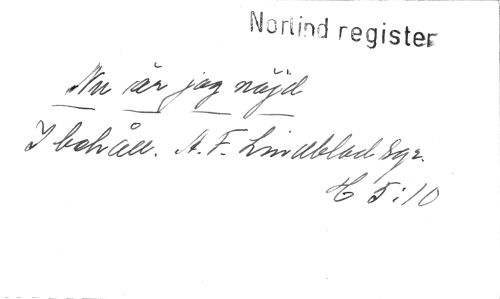 Norlind register
Nu är jag nöjd
I behåll. A. F. Lindblad
H 5:10